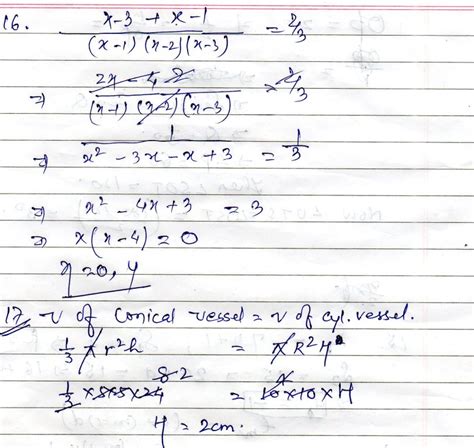 16. x-3 + x-1 / (x-1) (x-2) (x-3) = 2/3
⇒ 2x-4 2 / (x-1) (x-2) (x-3) = 2/3
⇒ 1 / x² - 3x - x + 3 = 1/3
⇒ x² - 4x + 3 = 3
⇒ x(x-4) = 0
x = 0, 4
17. v of conical vessel = v of cyl. vessel.
1/3 π r² h = π R² H
8 2
1/3 × 5 × 5 × 24 = 10 × 10 × H
H = 2cm.